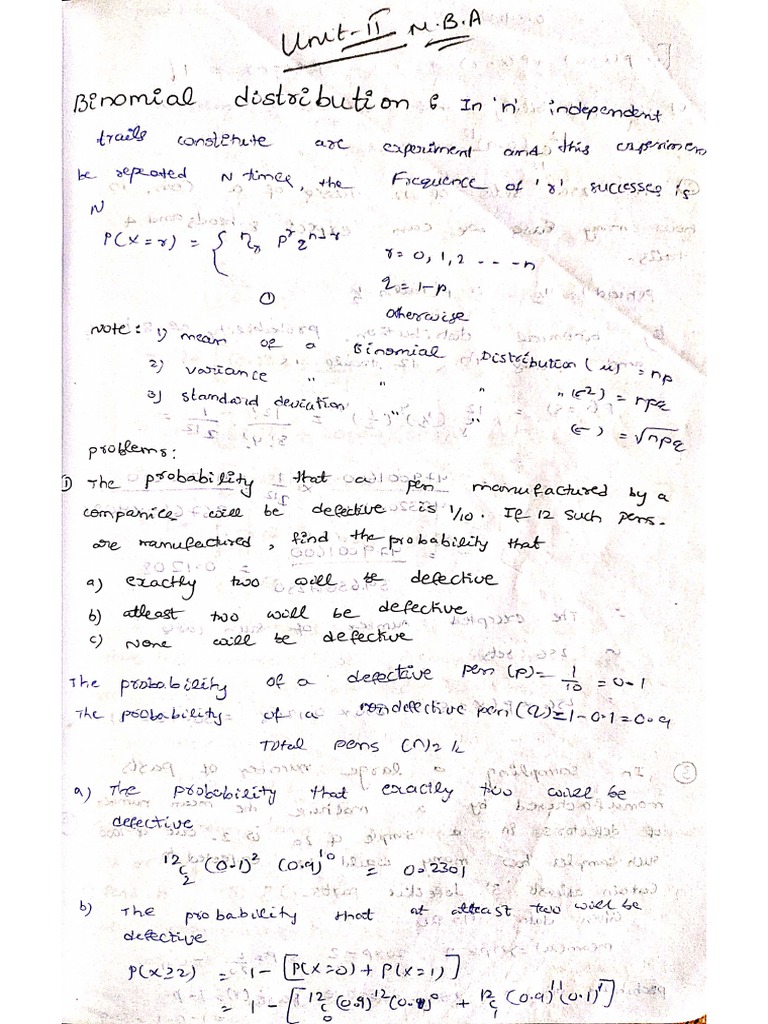 Unit-II M.B.A
Binomial distribution : In 'n' independent
trails constitute are experiment and this experiment
be repeated N times, the Frequence of 'r' successes is
N
P(X=r) = { nCr p^r q^n-r r = 0, 1, 2 - - - - n
q = 1-p
① otherwise
Note: 1) mean of a Binomial Distribution (μ) = np
2) variance " " " " (σ²) = npq
3) standard deviation " " (σ) = √npq
problems:
① The probability that a pen manufactured by a
companice will be defective is 1/10. If 12 such pens.
are manufactured, find the probability that
a) exactly two will be defective
b) atleast two will be defective
c) None will be defective
The probability of a defective pen (p) = 1/10 = 0.1
The probability of a nondefective pen (q) = 1 - 0.1 = 0.9
Total pens (n) = 12
a) The probability that exactly two will be
defective
12C2 (0.1)² (0.9)^10 = 0.2301
b) The probability that at atleast two will be
defective
P(X≥2) = 1 - [P(X=0) + P(X=1)]
= 1 - [12C0 (0.9)^12 (0.1)^0 + 12C1 (0.9)^11 (0.1)^1]